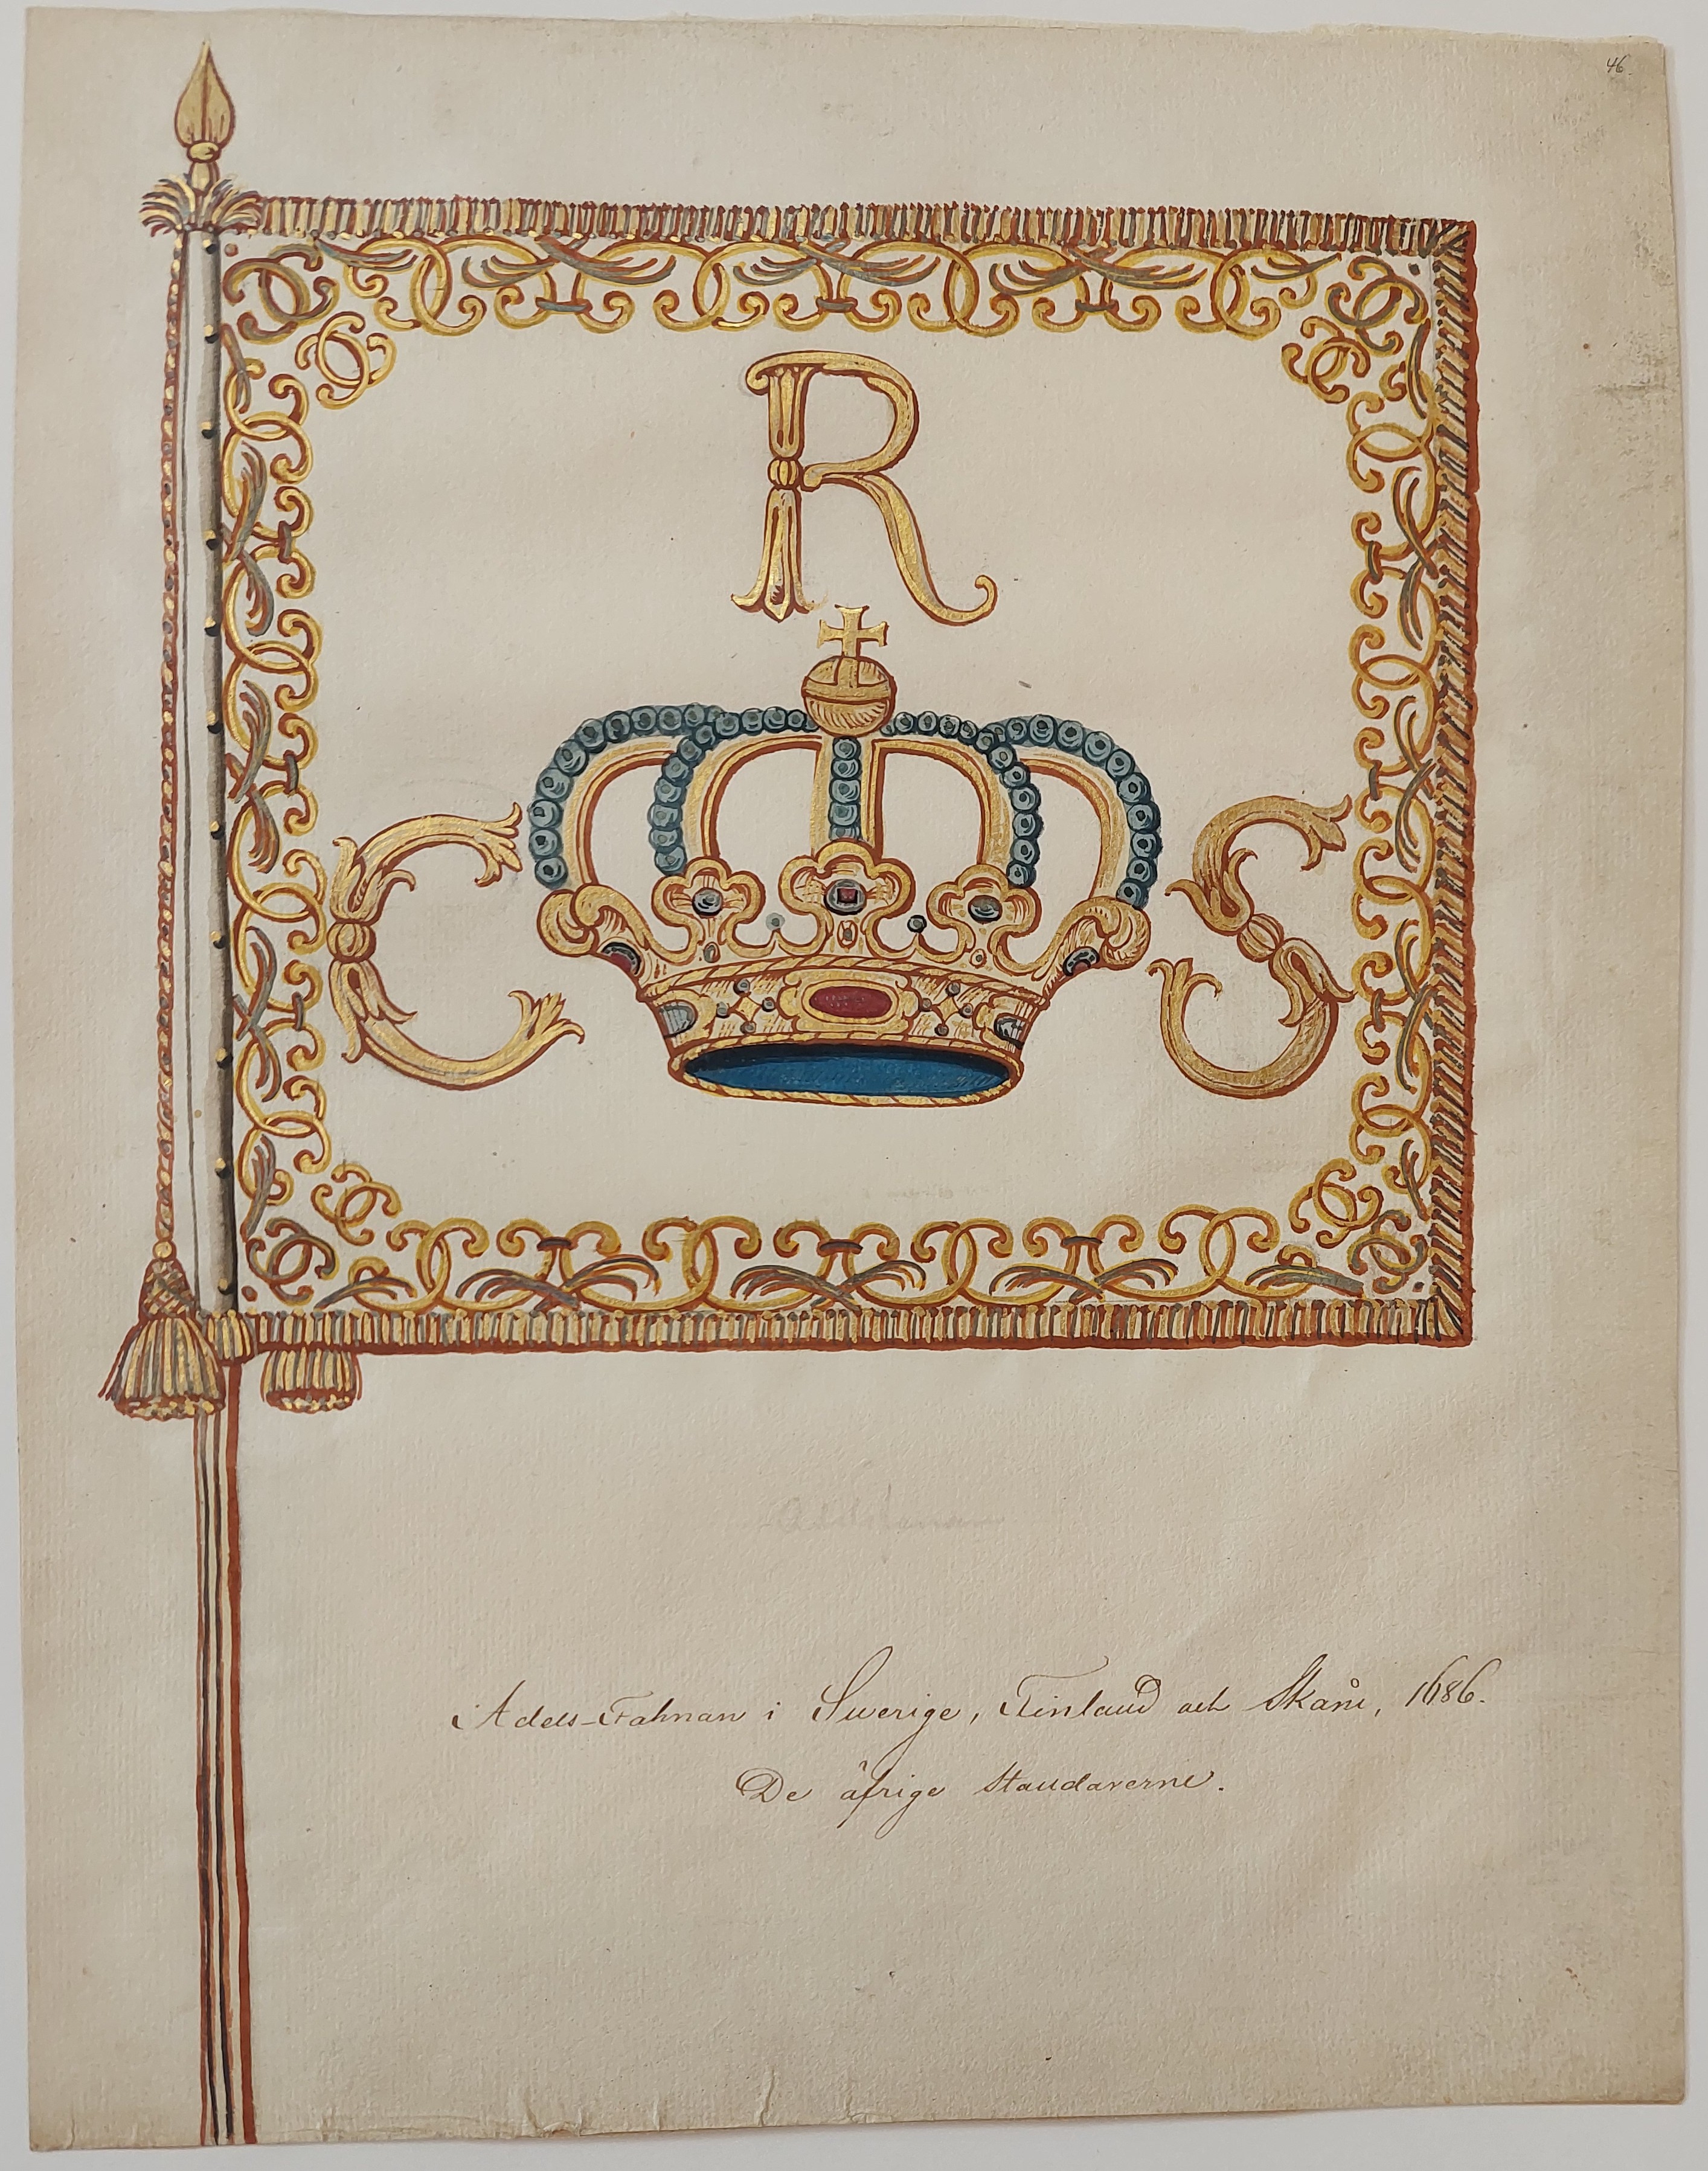 46.
R
C S
Adels-Fahnan i Swerige, Finland och Skåne, 1686.
De öfrige Standarerne.